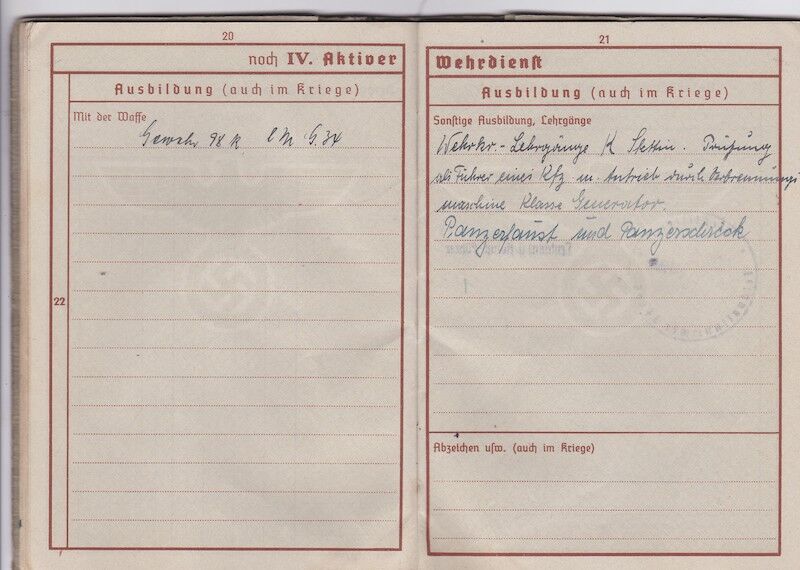 20
noch IV. Aktiver
Ausbildung (auch im Kriege)
Mit der Waffe
Gewehr 98 k l M G. 34
22
21
Wehrdienst
Ausbildung (auch im Kriege)
Sonstige Ausbildung, Lehrgänge
Wehrkr.-Lehrgänge K Stettin. Prüfung
als Führer eines Kfz m. Antrieb durch Verbrennungs
maschine Klasse Generator.
Panzerfaust und Panzerschreck
Abzeichen usw. (auch im Kriege)